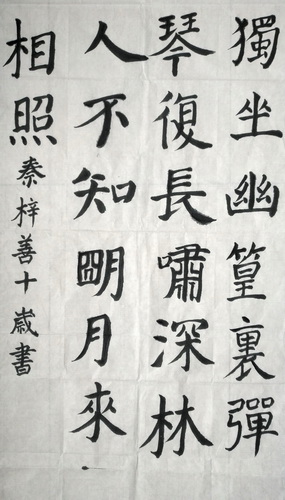 獨坐幽篁裏彈
琴復長嘯深林
人不知朙月來
相照秦梓善十歲書